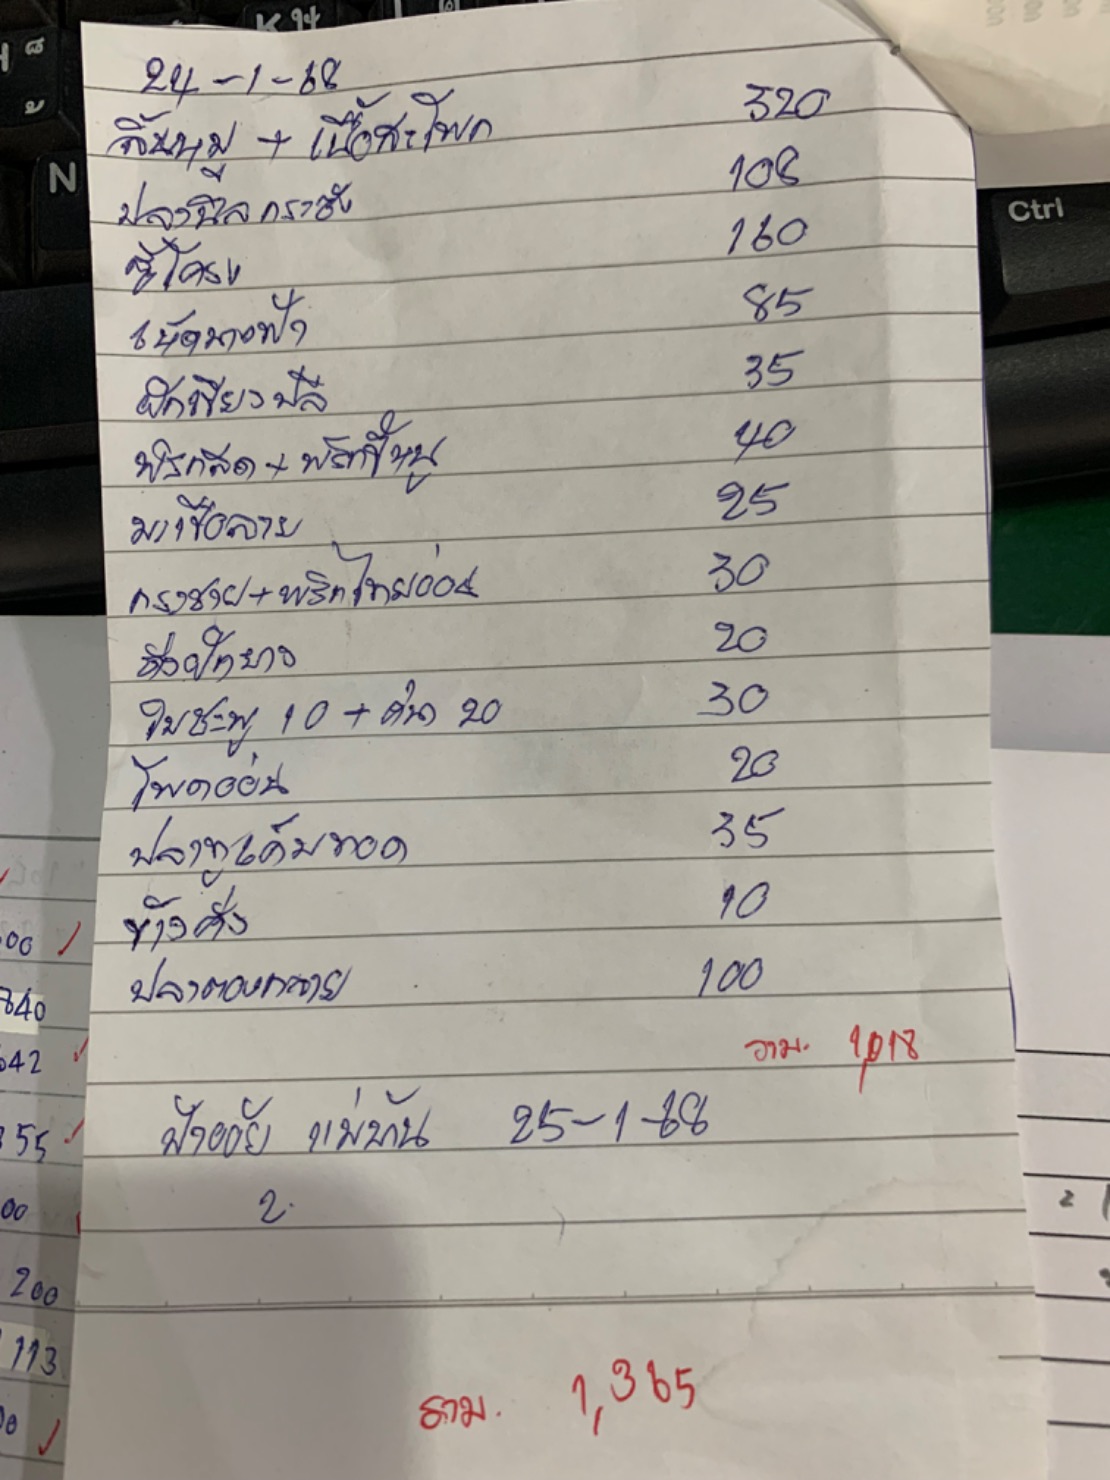 24-1-68
ลิ้นหมู + เนื้อสะโพก 320
ปลานิลกระชัง 108
ซี่โครง 160
เห็ดนางฟ้า 85
ผักเขียวปลี 35
พริกสด + พริกขี้หนู 40
มะเขือลาย 25
กระชาย + พริกไทยอ่อน 30
20
ใบชะพู 10 + คะน้า 20 30
โพดอ่อน 20
ปลาทูเค็มทอด 35
10
ปลาตองกลาย 100
รวม. 1,018
25-1-68
2.
รวม. 1,365
K
N
Ctrl
00
840
642
355
00
200
113